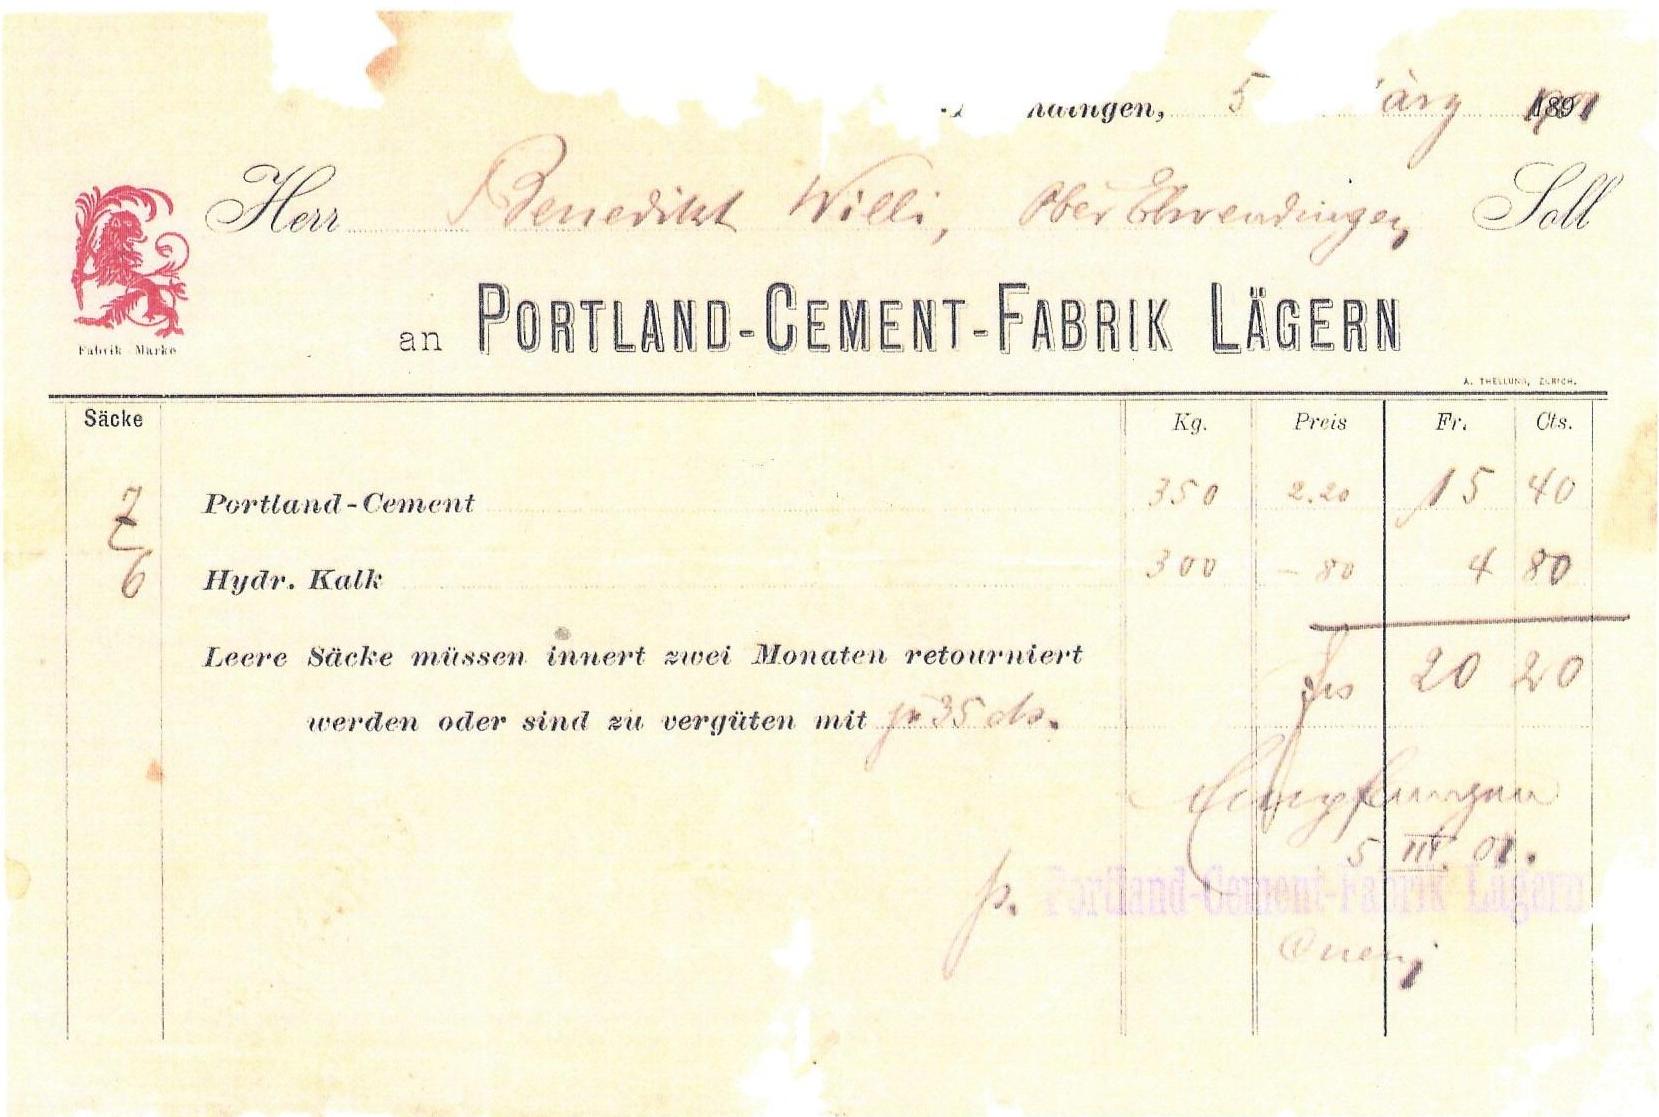 5 1901
Herr Benedikt Willi, Ober Ehrendingen Soll
Fabrik Marke
an PORTLAND-CEMENT-FABRIK LÄGERN
A. THELLUNG, ZÜRICH.
Säcke Kg. Preis Fr. Cts.
7 Portland-Cement 350 2.20 15 40
6 Hydr. Kalk 300 - 80 4 80
Leere Säcke müssen innert zwei Monaten retourniert
frs 20 20
werden oder sind zu vergüten mit 35 cts.
Empfangen
5 III. 01.
p. Portland-Cement-Fabrik Lägern